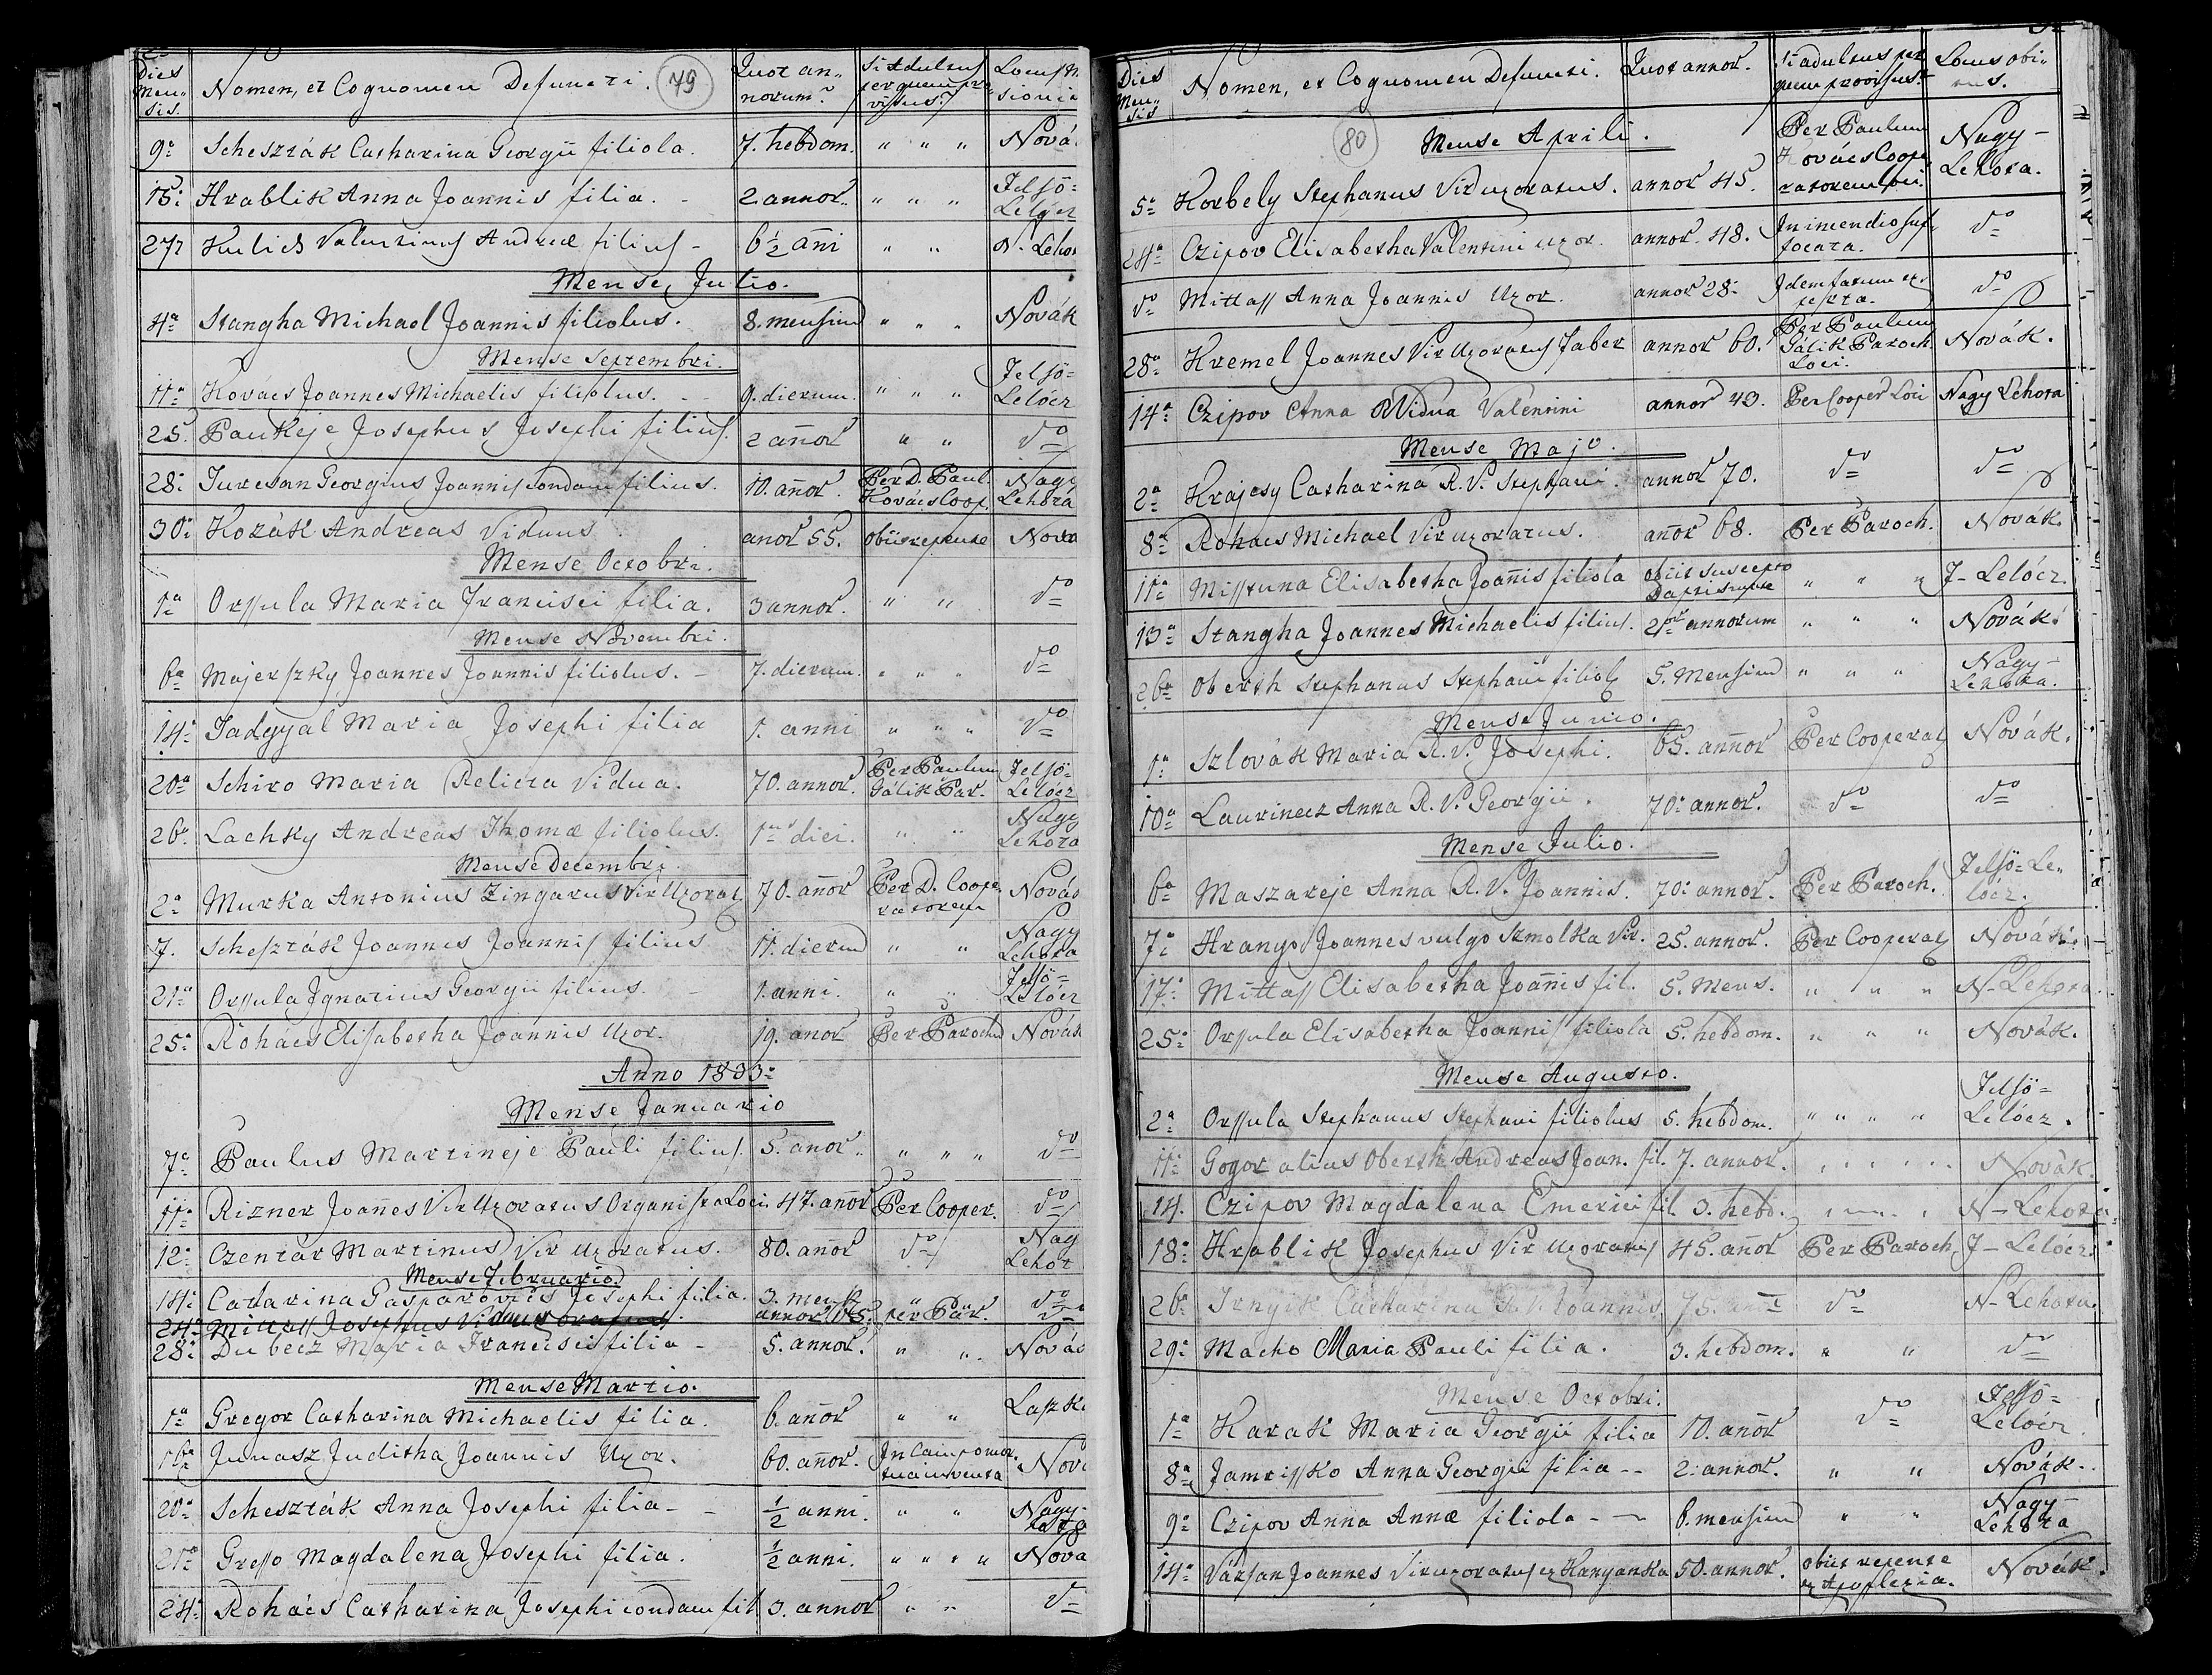 Dies Mensis. Nomen, et Cognomen Defuncti. 79 Quot annorum? Si Adultus per quem provisus?
9a Scheszták Catharina Georgii filiola. 7. hebdom. " " " Nová
15: Hrablik Anna Joannis filia. - 2 annor. " " " Felsö= Lelócz
27 Kulich Valentinus Andreæ filius - 6 1/2 añi " " N. Lehot
Mense Julio.
4a Stangha Michael Joannis filiolus. 8. mensium " " " Novák
Mense Septembri.
11a Kovács Joannes Michaelis filiolus. - - 9. dierum. " " " Felsö= Lelócz
25. Paukeje Josephus Josephi filius. 2 añor " " do
28: Juresan Georgius Joannis condam filius. 10. añor. Per D. Paul. Kovács Coop. Nagy Lehota
30: Kozák Andreas Viduus. anor 55. obiit repente Nova
Mense Octobri.
1a Orssula Maria Francisci filia. 3 annor. " " do
Mense Novembri.
6a Majerszky Joannes Joannis filiolus. - 7. dierum. " " " do
14a Jadgyal Maria Josephi filia 1. anni " " " do
20a Schiro Maria Relicta Vidua. 70. annor. Per Paulum Gálik Par. Felsö= Lelócz
26a Lachky Andreas Thomæ filiolus. 1us diei. " " Nagy Lehota
Mense Decembri.
2a Murka Antonius Zingarus Vir Uxorat 70. añor Per D. Cooperatorem Novás
7. Scheszták Joannes Joannis filius 11. dierum " " Nagy Lehota
21a Orssula Ignatius Georgii filius. - 1. anni. " " Felsö= Lelócz
25a Rohács Elisabetha Joannis Uxor. 19. anor Per Paroch Novák
Anno 1833:
Mense Januario
7a Paulus Martineje Pauli filius. 5. anor.. " " " do
11a Rizner Joañes Vir Uxoratus Organista Loci. 47. añor Per Cooper. do
12: Czentár Martinus Vir Uxoratus. 80. añor do Nag Lehot
Mense Februario
14: Catarina Gasparovics Josephi filia. 3. mens " do
24a Mittass Josephus Viduus annor 65. per Par. do
28: Dubecz Maria Francisci filia - 5. annor. " " Novás
Mense Martio.
1a Gregor Catharina Michaelis filia. 6. añor " " Laszk
16a Junasz Juditha Joannis Uxor. 60. añor. In Campo mortua inventa Nová
20a Schesztták Anna Josephi filia - - 1/2 anni. " " Nagy-
21a Gresso Magdalena Josephi filia. 1/2 anni. " " " " Nova
24. Rohács Catharina Josephi condam fil 3. annor " " do
Dies Mensis Nomen, et Cognomen Defuncti. Quot annor. Si adultus per quem provisus? Locus obitus.
80 Mense Aprili.
5a Korbely Stephanus Vir uxoratus. annor 45. Per Paulum Kovács Cooperatorem loci. Nagy- Lehota.
24a Czipov Elisabetha Valentini uxor. annor. 48. In incendio suffocata. do
do Mittass Anna Joannis Uxor. annor 28: Idem fatum experta. do
28a Kremel Joannes Vir Uxoratus Faber annor 60. Per Paulum Gálik Paroch Loci. Novák.
14a Czipov Anna Vidua Valentini annor 43. Per Cooper Loci Nagy Lehota
Mense Majo.
2a Krajcsy Catharina R. V. Stephani. annor 70. do do
8a Rohács Michael Vir uxoratus. añor 68. Per Paroch. Novák.
11a Misstuna Elisabetha Joañis filiola obiit suscepto " " " F- Lelócz.
13a Stangha Joannes Michaelis filius. 2or annorum " " " Novák.
26a Oberth Stephanus Stephani filiol 5. Mensium " " " Nagy- Lehota.
Mense Junio.
1a Szlovák Maria R. V. Josephi. 65. annor Per Cooperat Novák.
10a Laurinecz Anna R. V. Georgii. 70: annor. do do
Mense Julio.
6a Maszareje Anna R. V. Joannis. 70: annor. Per Paroch. Felsö= Lelócz.
7a Hrango Joannes vulgo Szmolka Vir. 25. annor. Per Cooperat Novák.
17a Mittass Elisabetha Joañis fil. 5. Mens. " " " N- Lehota.
25a Orssula Elisabetha Joannis filiola 5. hebdom. " " " Novák.
Mense Augusto.
2a Orssula Stephanus Stephani filiolus 5. hebdom. " " " " Felsö= Lelócz.
11a Gogor alias Oberth Andreas Joan. fil. 7. annor. " " " Novák
14. Czipov Magdalena Emerici fil 3. hebd. " " " N- Lehota.
18a Hrablik Josephus Vir Uxoratus 45. añor Per Paroch. F- Lelócz.
26a Catharina Joannis 75. do N- Lehota.
29: Macho Maria Pauli filia. 3. hebdom. " " do
Mense Octobri.
1a Karak Maria Georgii filia 10. añor do Felsö= Lelócz
8a Jamrissko Anna Georgii filia -- 2: annor. " " Novák..
9a Czipov Anna Annæ filiola - - 6. mensium " " Nagy- Lehota
14a Vársan Joannes Vir uxoratus ex Kanyanka 50. annor. obiit repente ex Apoplexia. Novák.